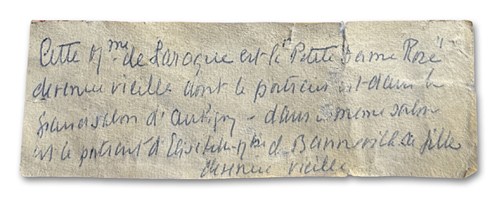 Cette Mme de Laroque est la "Petite Dame Rose"
devenue vieille dont le portrait est dans le
grand salon d'Aubigny - dans le même salon
est le portrait d' Mme de Banneville sa fille
devenue vieille